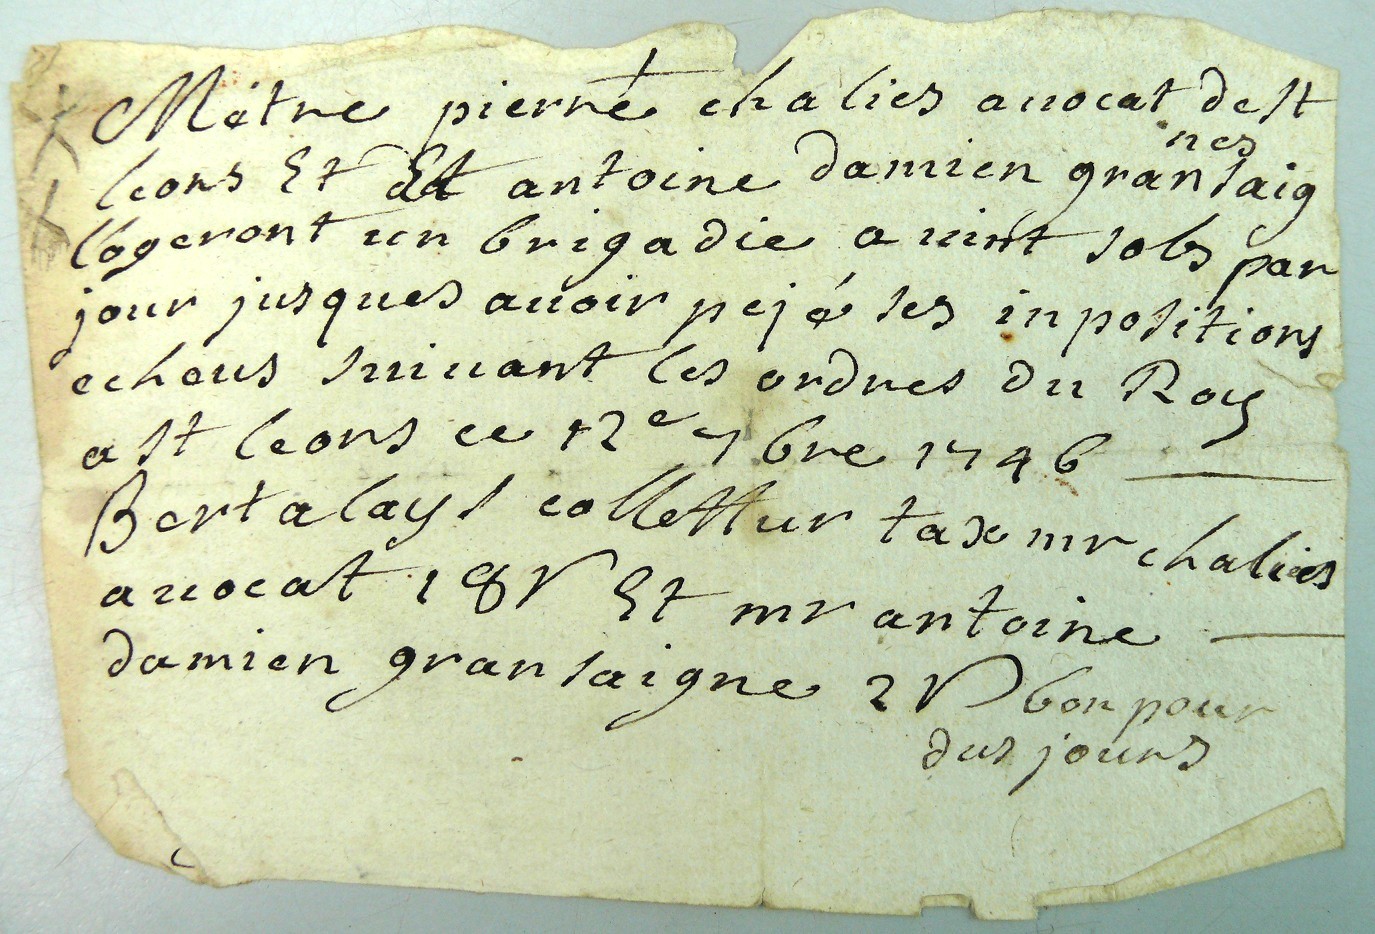 Métre pierre chalies auocat de st
leons Et Et antoine damien gransaig
nes
logeront un brigadie a uint sols par
jour jusques auoir pejé les inpositions
echeus suiuant les ordres du Roy
a st leons ce 12e 7bre 1746
Bertalays collettur taxe mr chalies
auocat 18 Et mr antoine
damien gransaigne 2 bon pour
dus jours